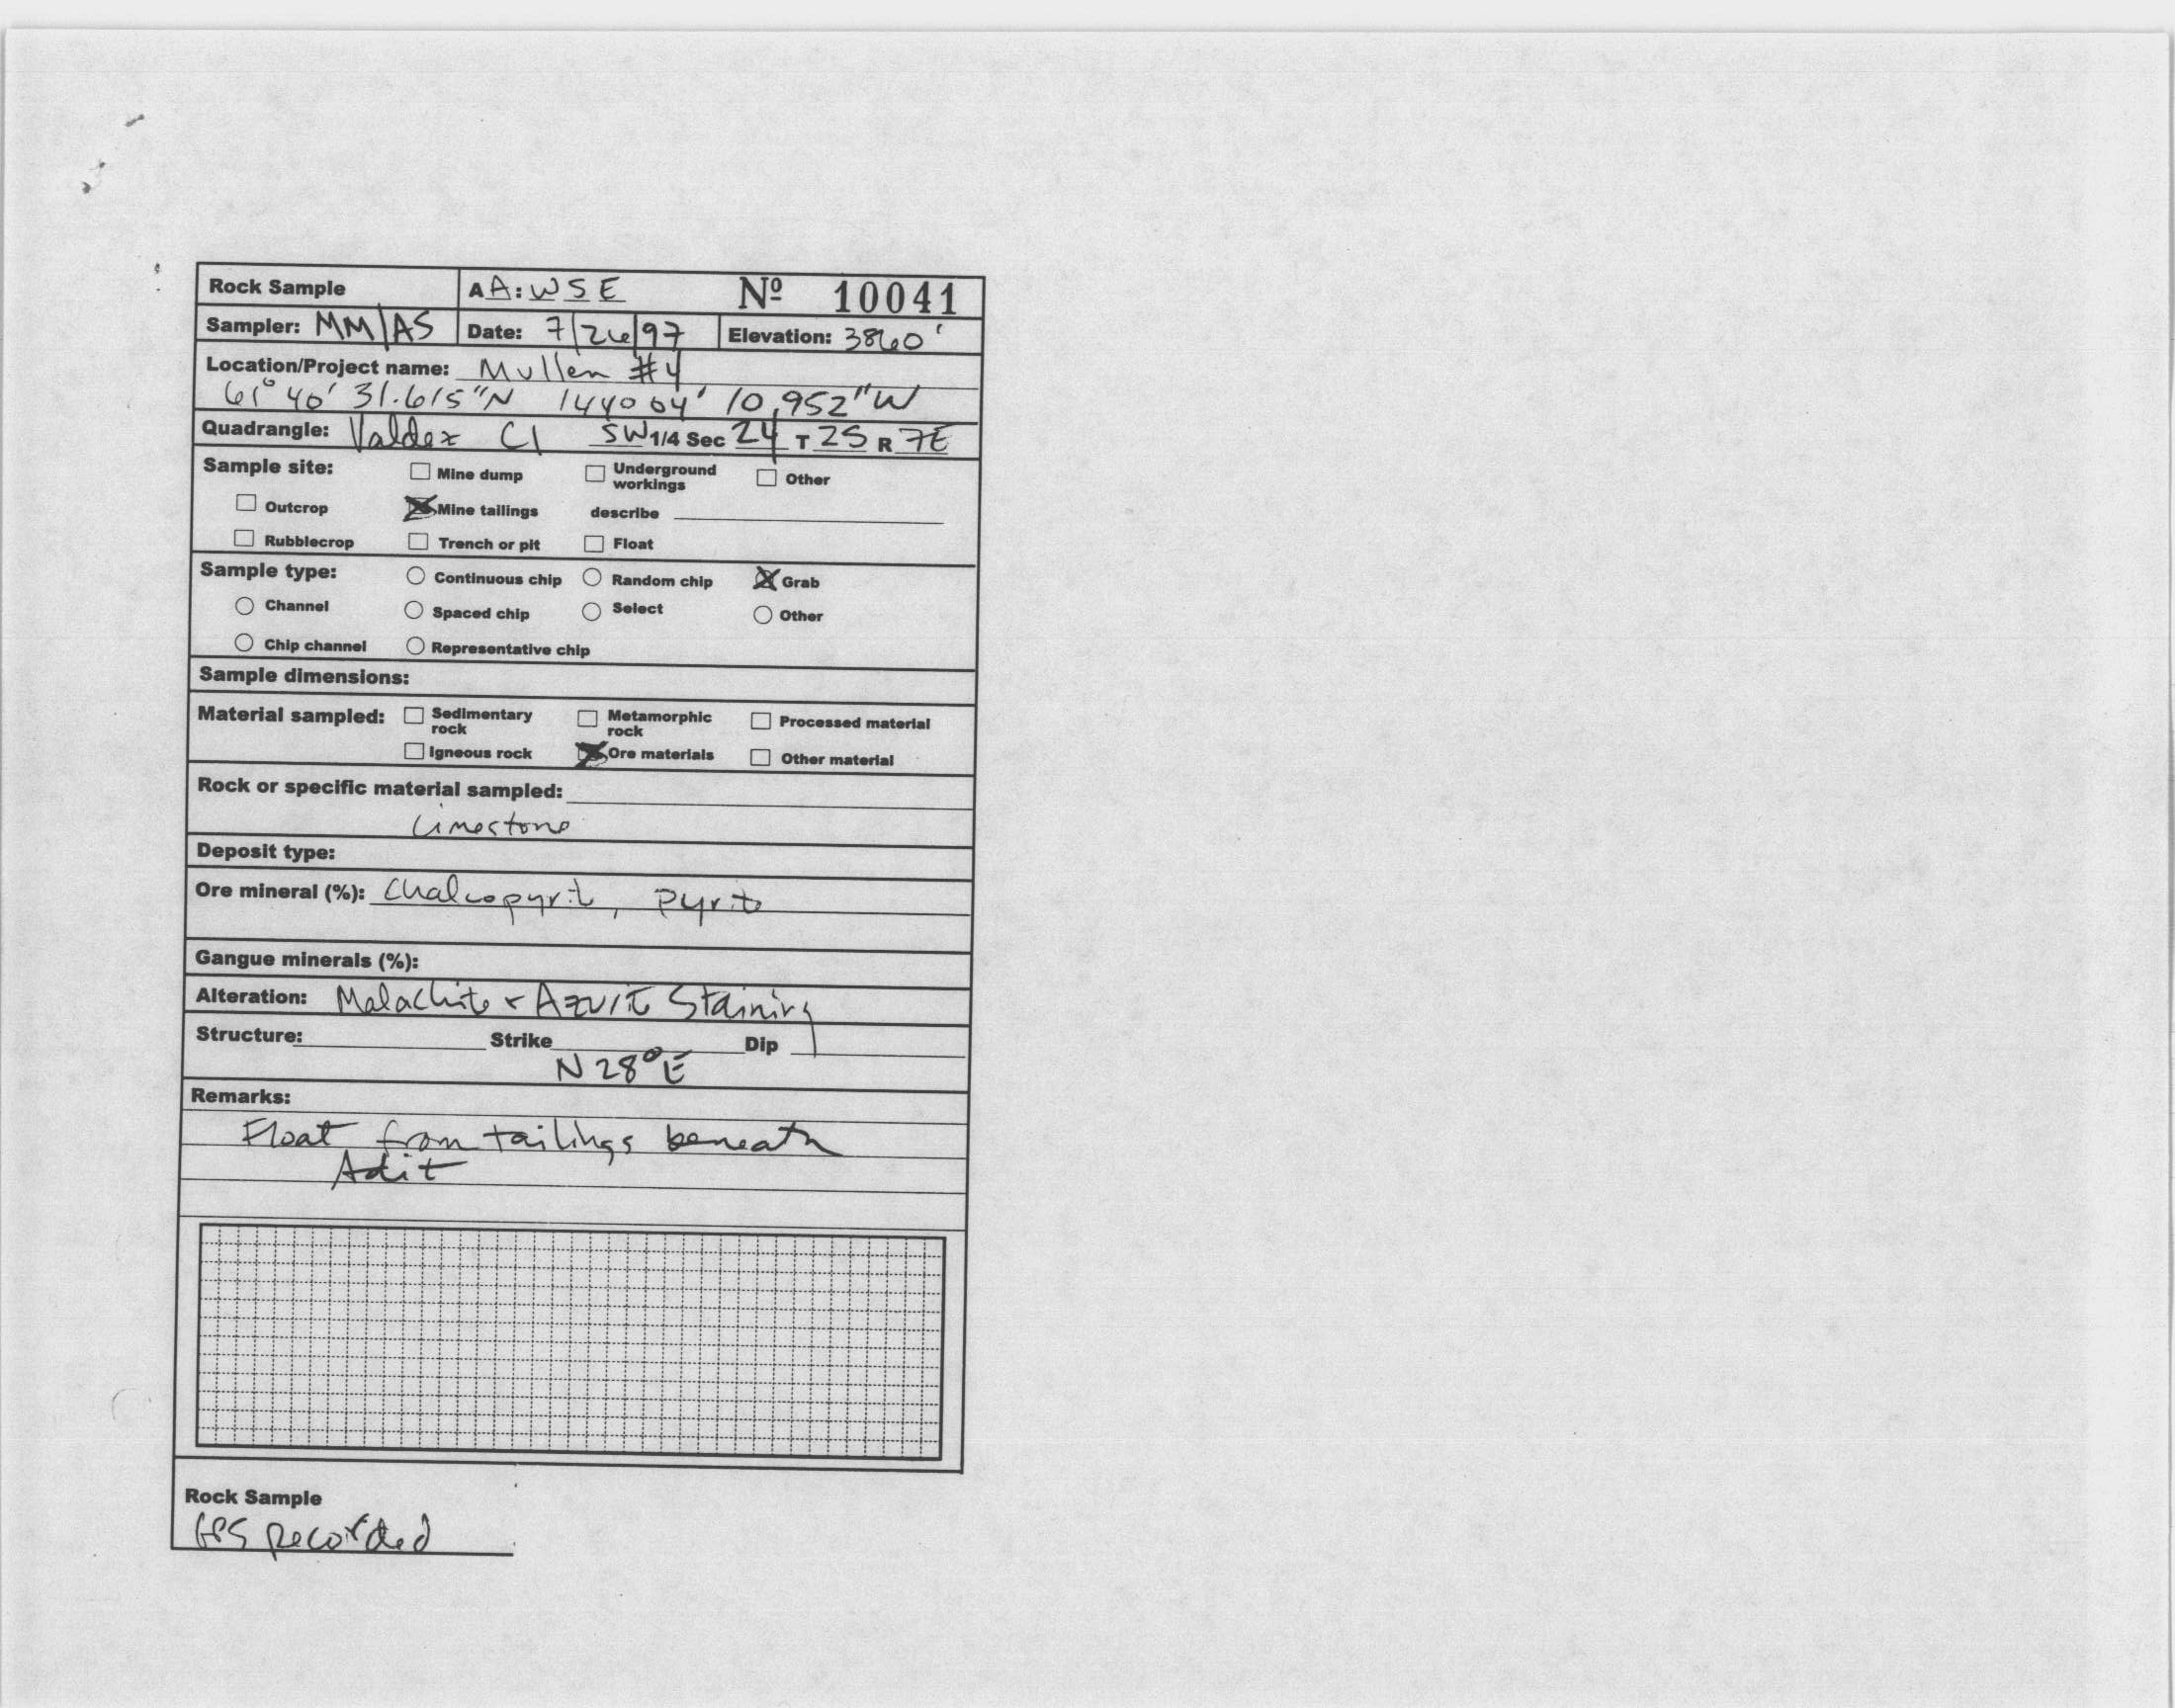 Rock Sample AA:WSE Nº 10041
Sampler: MM/AS Date: 7/26/97 Elevation: 3860'
Location/Project name: Mullen #4
61° 40' 31.615"N 144° 04' 10.952"W
Quadrangle: Valdez C1 SW 1/4 Sec 24 T 2S R 7E
Sample site: Mine dump Underground workings Other
Outcrop Mine tailings describe
Rubblecrop Trench or pit Float
Sample type: Continuous chip Random chip Grab
Channel Spaced chip Select Other
Chip channel Representative chip
Sample dimensions:
Material sampled: Sedimentary rock Metamorphic rock Processed material
Igneous rock Ore materials Other material
Rock or specific material sampled:
Limestone
Deposit type:
Ore mineral (%): Chalcopyrite, Pyrite
Gangue minerals (%):
Alteration: Malachite + Azurite Staining
Structure: Strike Dip
N28°E
Remarks:
Float from tailings beneath
Adit
Rock Sample
GPS Recorded